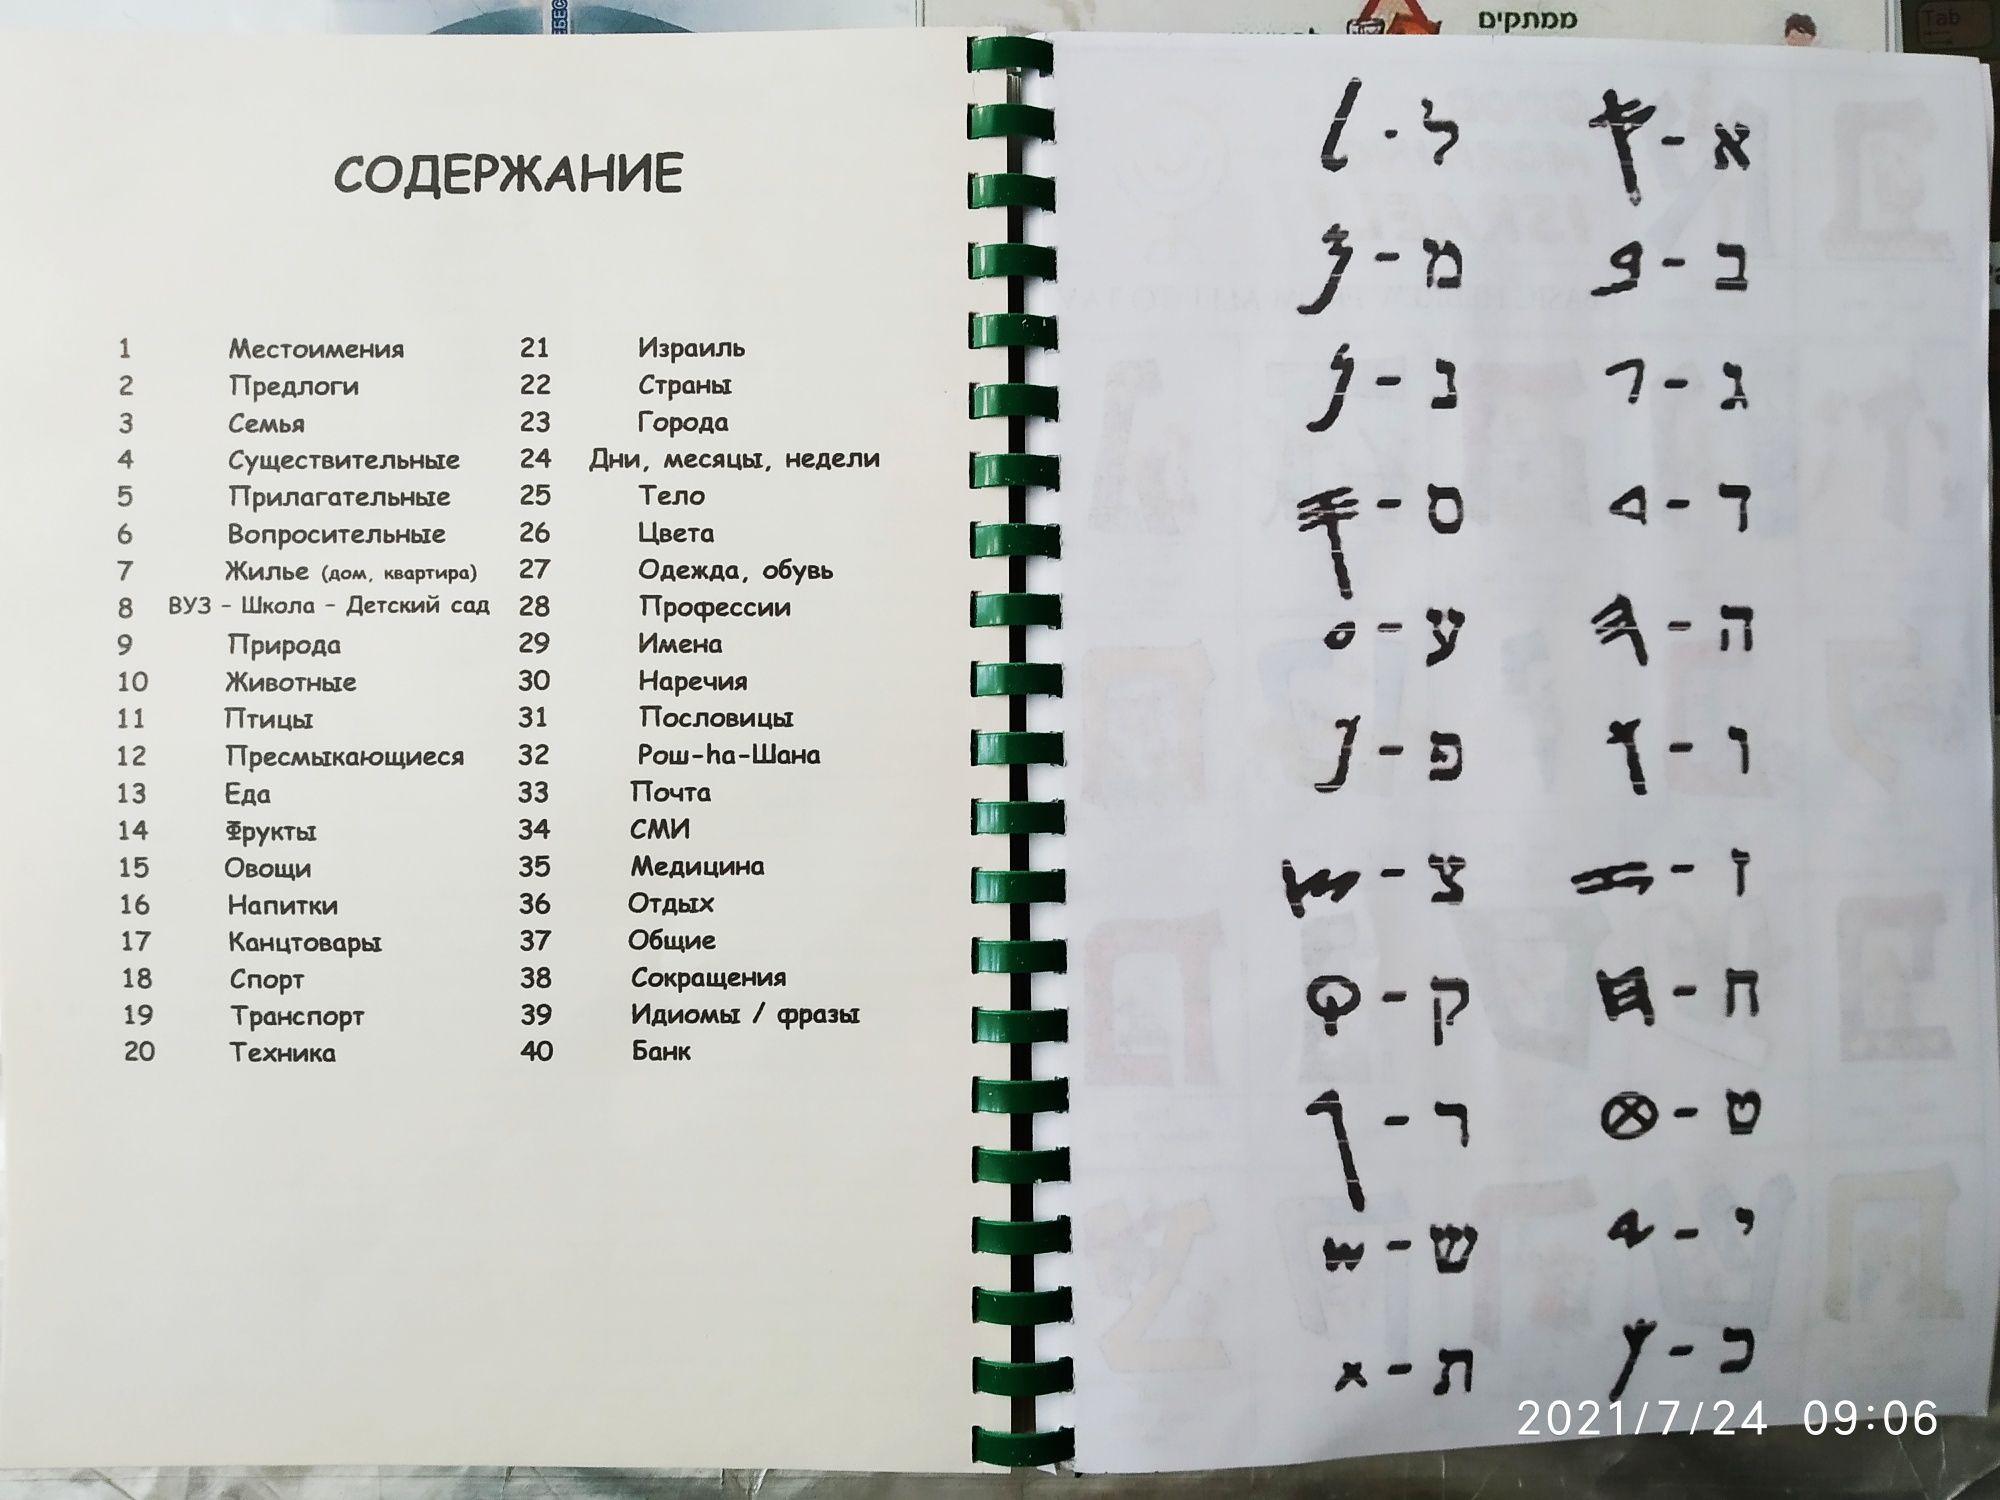 ממתקים
СОДЕРЖАНИЕ
1 Местоимения
2 Предлоги
3 Семья
4 Существительные
5 Прилагательные
6 Вопросительные
7 Жилье (дом, квартира)
8 ВУЗ - Школа - Детский сад
9 Природа
10 Животные
11 Птицы
12 Пресмыкающиеся
13 Еда
14 Фрукты
15 Овощи
16 Напитки
17 Канцтовары
18 Спорт
19 Транспорт
20 Техника
21 Израиль
22 Страны
23 Города
24 Дни, месяцы, недели
25 Тело
26 Цвета
27 Одежда, обувь
28 Профессии
29 Имена
30 Наречия
31 Пословицы
32 Рош-hа-Шана
33 Почта
34 СМИ
35 Медицина
36 Отдых
37 Общие
38 Сокращения
39 Идиомы / фразы
40 Банк
א - 𐤀
ב - 𐤁
ג - 𐤂
ד - 𐤃
ה - 𐤄
ו - 𐤅
ז - 𐤆
ח - 𐤇
ט - 𐤈
י - 𐤉
כ - 𐤊
ל - 𐤋
מ - 𐤌
נ - 𐤍
ס - 𐤎
ע - 𐤏
פ - 𐤐
צ - 𐤑
ק - 𐤒
ר - 𐤓
ש - 𐤔
ת - 𐤕
2021/7/24 09:06